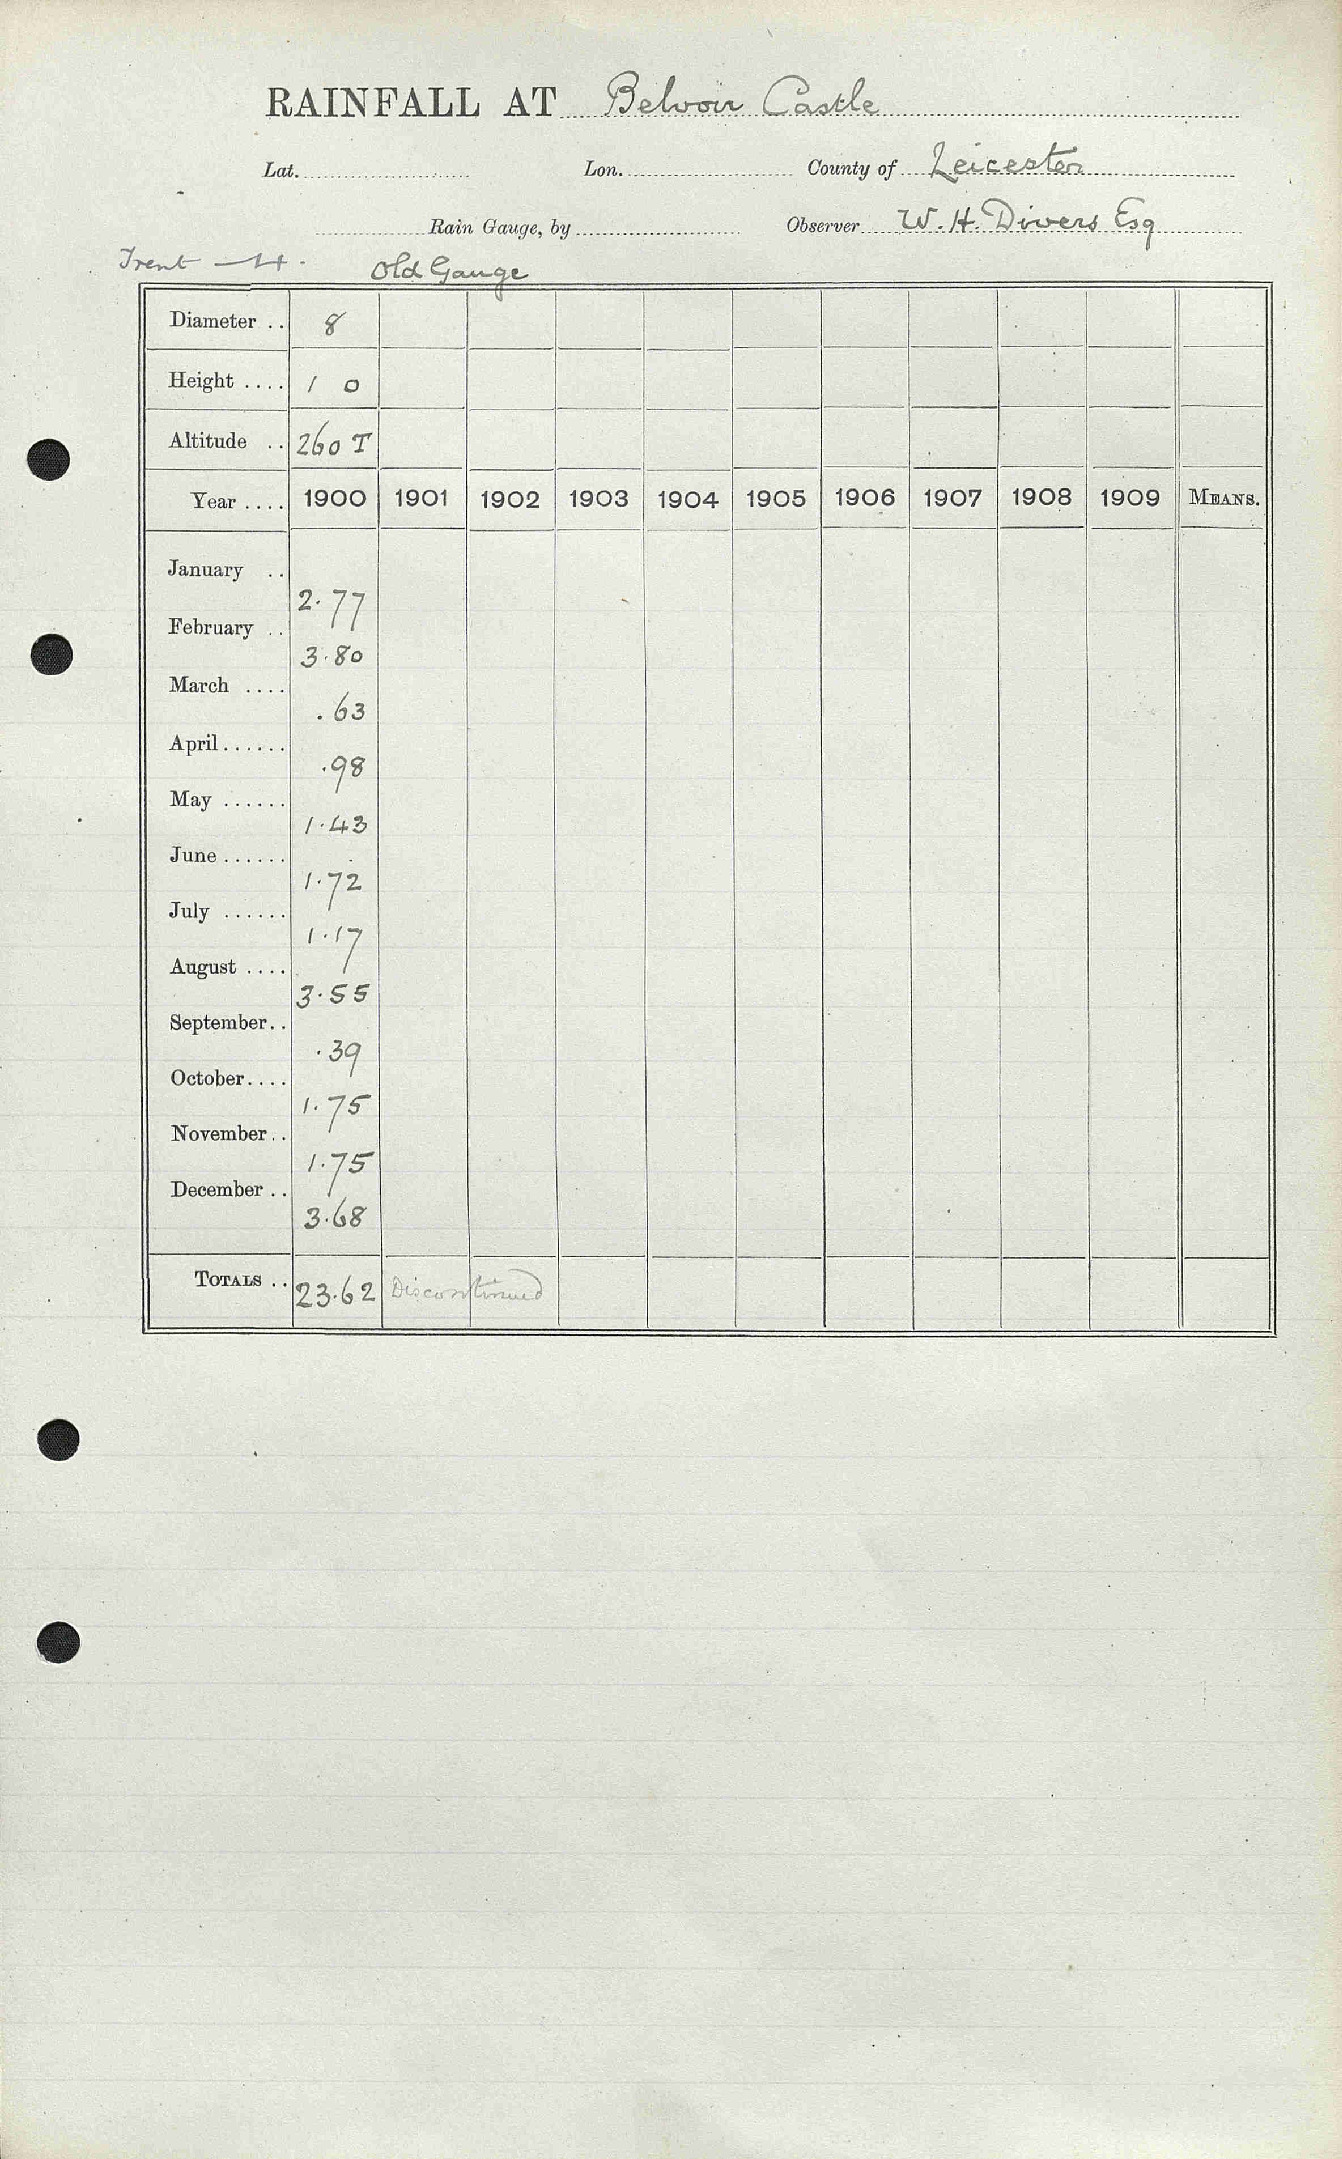 RAINFALL AT Belvoir Castle
Lat. Lon. County of Leicester
Rain Gauge, by Observer W. H. Divers Esq
Trent Old Gauge
Diameter .. 8
Height .... 1 0
Altitude .. 260 T
Year .... 1900 1901 1902 1903 1904 1905 1906 1907 1908 1909 MEANS.
January .. 2.77
February .. 3.80
March .... .63
April ...... .98
May ...... 1.43
June ...... 1.72
July ...... 1.17
August .... 3.55
September .. .39
October .... 1.75
November .. 1.75
December .. 3.68
TOTALS .. 23.62 Discontinued